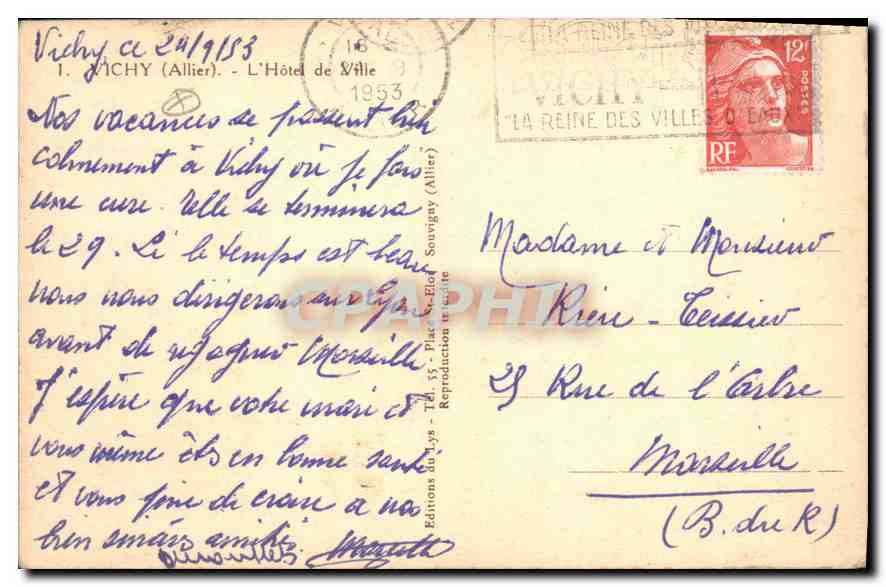 Vichy ce 24/9/53
1. VICHY (Allier). - L'Hôtel de Ville
Nos vacances se passent bien
calmement à Vichy où je fais
une cure. Elle se terminera
le 29. Si le temps est beau
nous nous dirigerons sur Lyon
avant de regagner Marseille
J'espère que votre mari et
vous même êtes en bonne santé
et vous prie de croire à nos
bien sincères amitiés
Editions du Lys - Tél. 55 - Place St-Eloi, Souvigny (Allier)
Reproduction interdite
18
1953
VICHY
"LA REINE DES VILLES D'EAUX"
12F
POSTES
RF
CPAPHIL
Madame et Monsieur
Rière-Teissier
25 Rue de l'Arbre
Marseille
(B. du R)